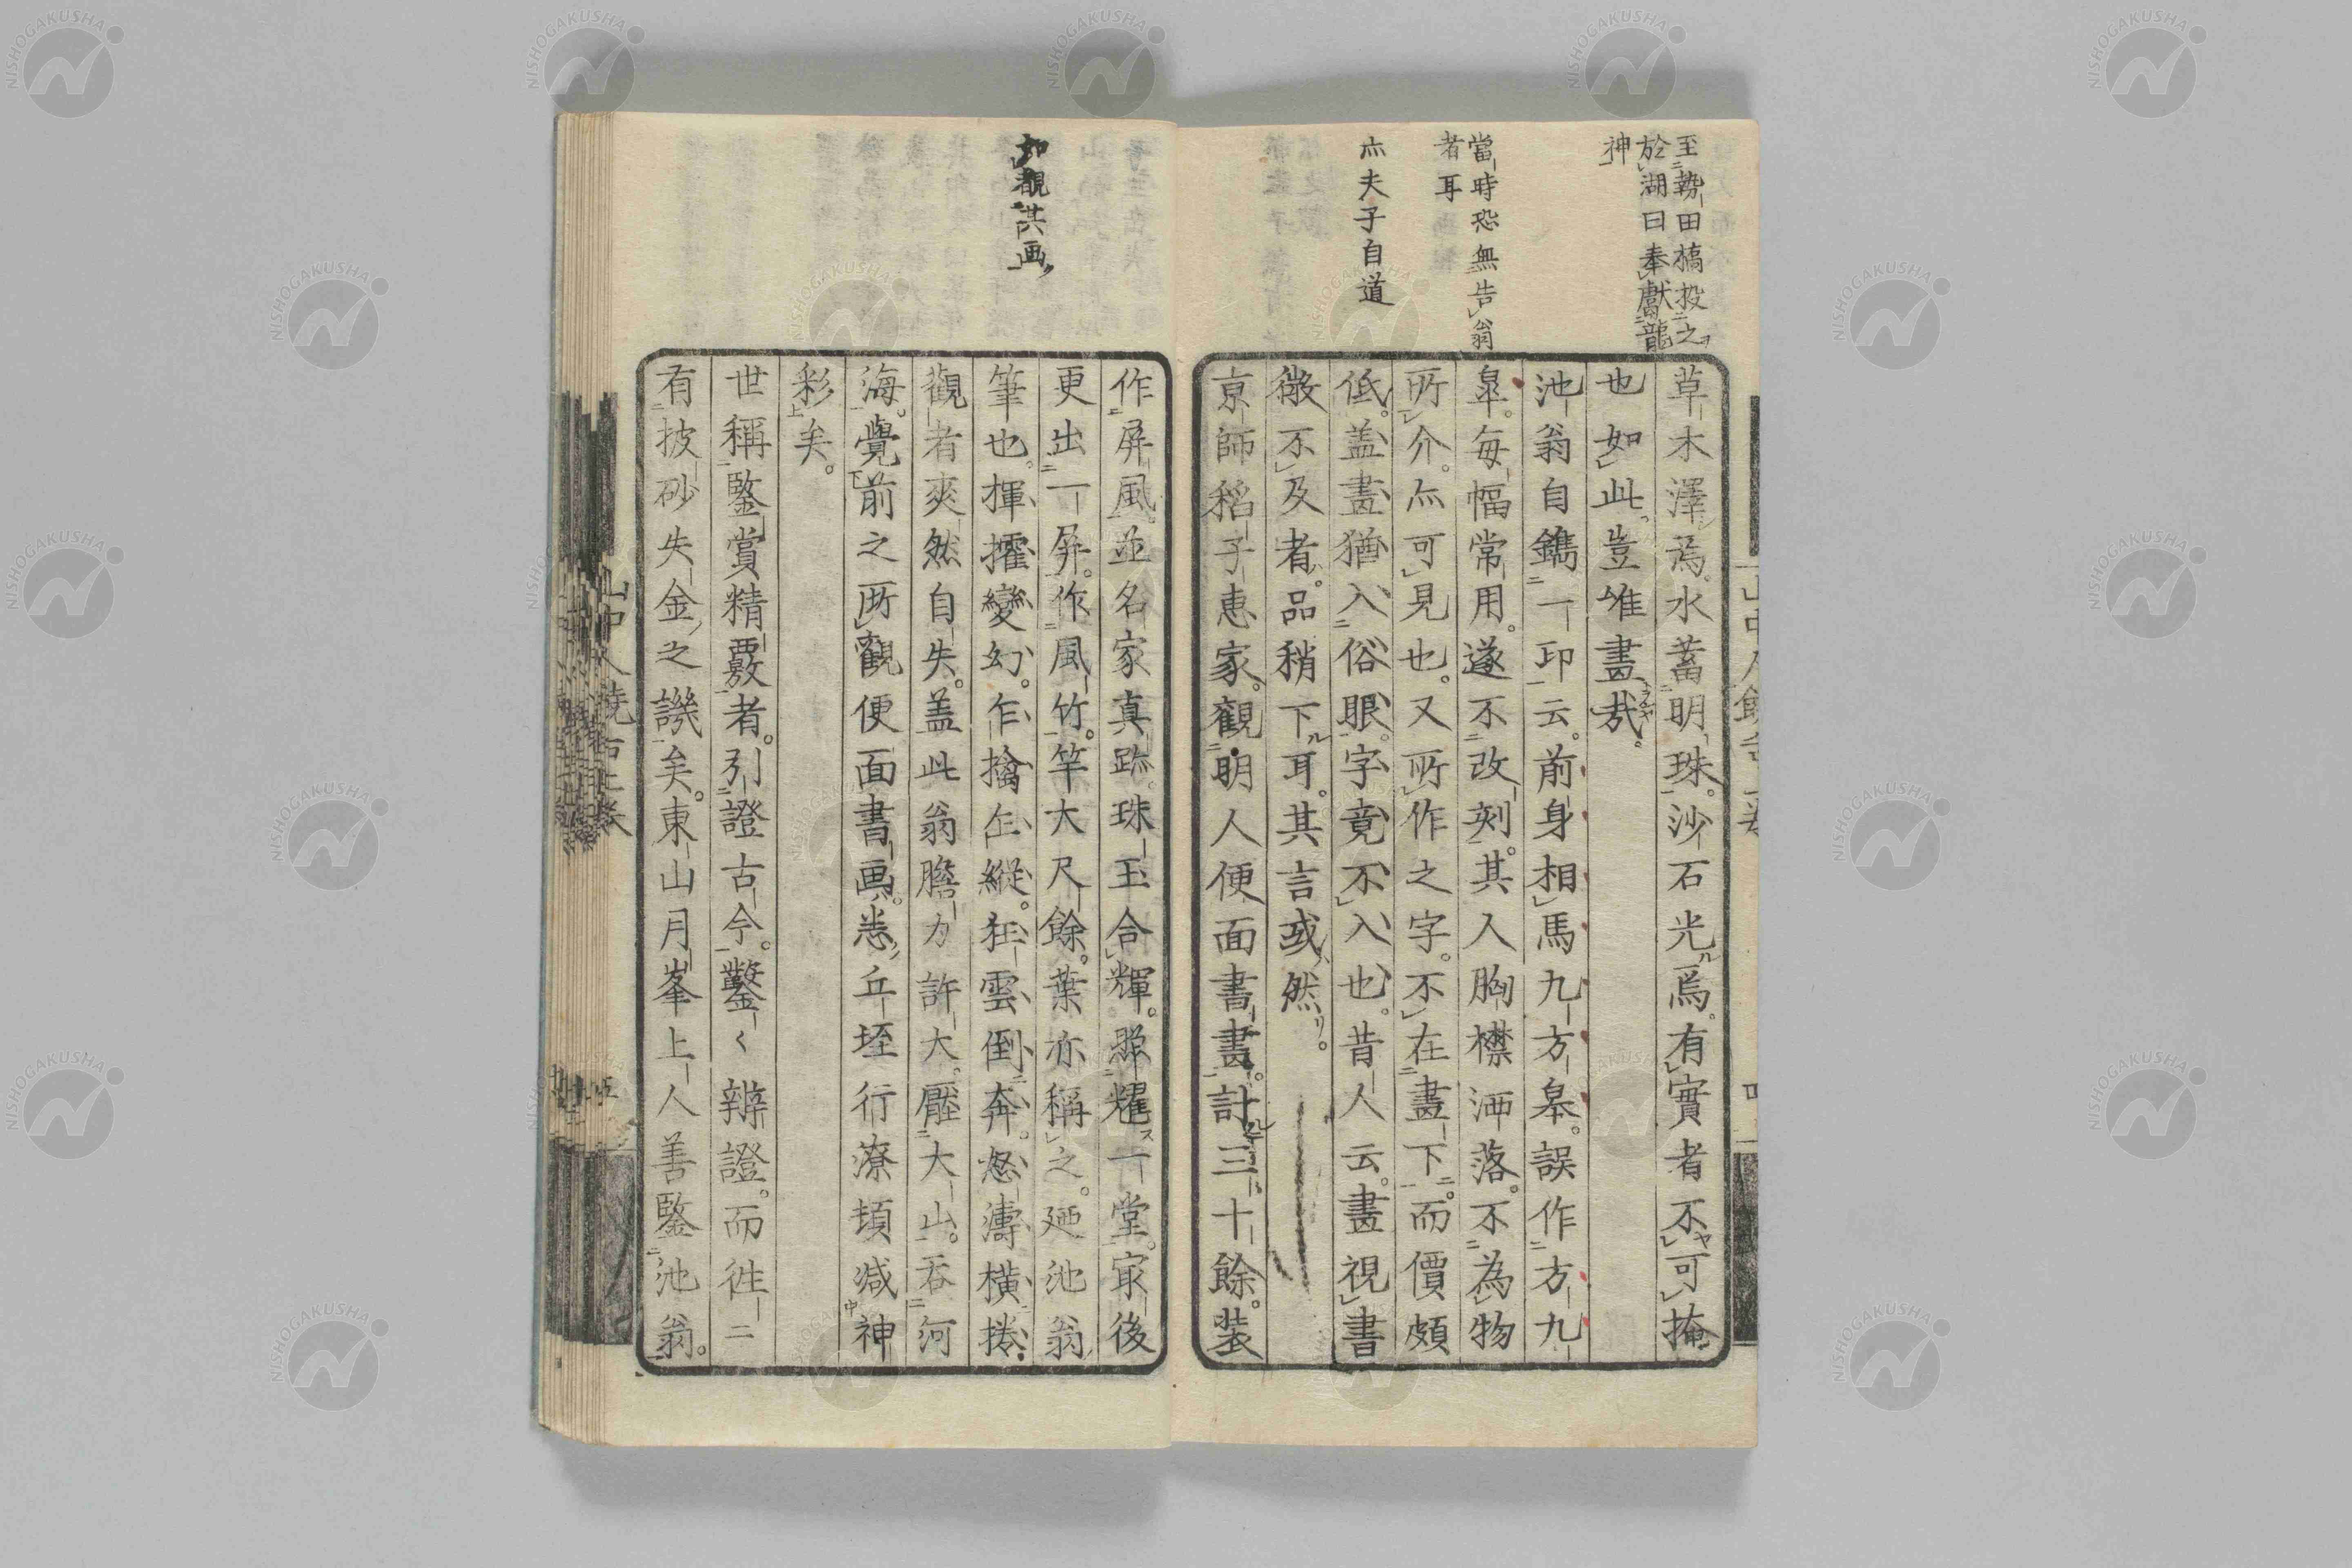 至勢田橋投之
於湖曰奉獻龍
神
當時恐無告翁
者耳
亦夫子自道
草木澤焉水蓄明珠沙石光焉有實者不可掩
也如此豈唯畫哉
池翁自鐫一印云前身相馬九方皋誤作方九
皐每幅常用遂不改刻其人胸襟洒落不為物
所介亦可見也又所作之字不在畫下而價頗
低盖畫猶入俗眼字竟不入也昔人云畫視書
微不及者品稍下耳其言或然
京師稻子惠家觀明人便面書畫計三十餘裝
如觀洪画
作屏風並名家真跡珠玉合輝照耀一堂㝡後
更出一屏作風竹竿大尺餘葉亦稱之廼池翁
筆也揮攉變幻乍擒乍縱狂雲倒奔怒濤橫捲
觀者爽然自失盖此翁膽力許大壓大山吞河
海覺前之所觀便面書画悉丘垤行潦頓减神
彩矣
世稱鑒賞精覈者引證古今鑿〱辨證而徃二
有披砂失金之譏矣東山月峯上人善鑒池翁